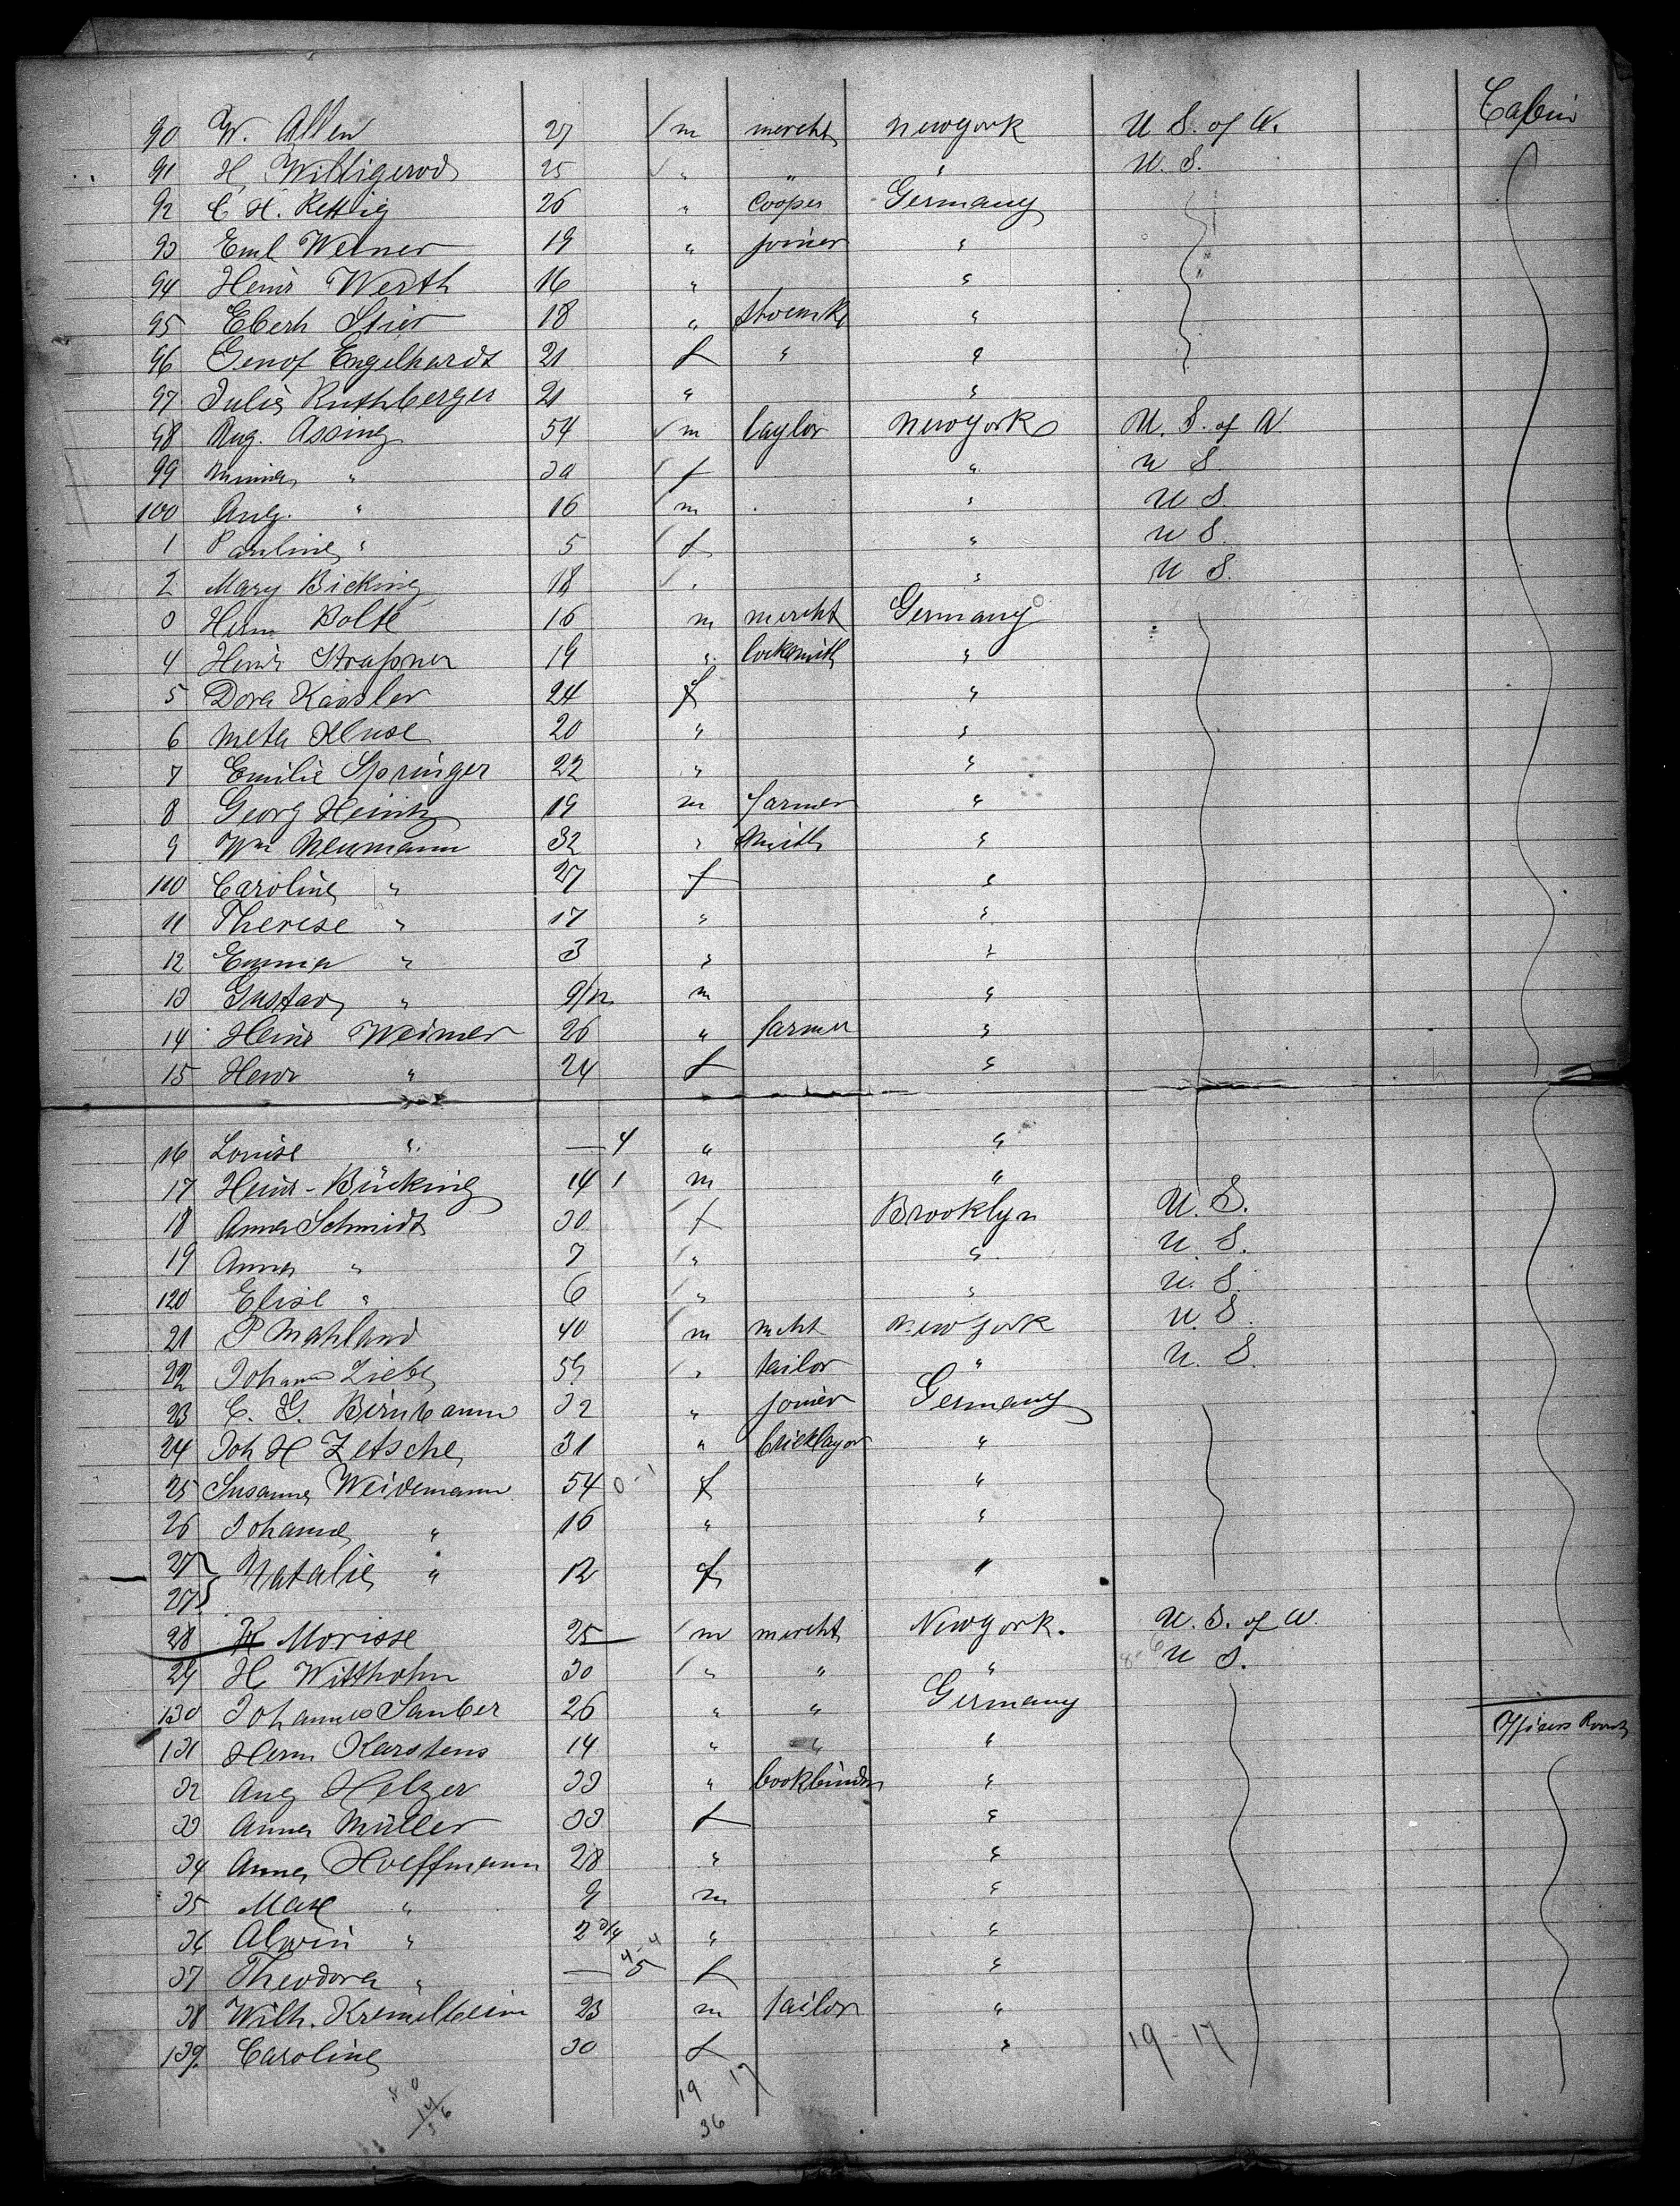 Cabin
90 W. Allen 27 m mercht Newyork U S. of A.
91 H Wittigerod 25 " " " U. S.
92 C H. Rettig 26 " Cooper Germany
93 Emil Werner 19 " joiner "
94 Heinr Werth 16 " "
95 Eberh Stier 18 " shoemkr "
96 Genof Engelhardt 21 f " "
97 Julie Ruthberger 21 " "
98 Aug. Assing 54 m taylor Newyork U. S. of A.
99 Minna " 30 f " U S.
100 Aug. " 16 m " U S.
1 Pauline " 5 f " U S.
2 Mary Bicking 18 " " U S.
3 Herm Bolte 16 m mercht Germany
4 Heinr Strassner 19 " locksmith "
5 Dora Kassler 24 f "
6 Meta Kluse 20 " "
7 Emilie Springer 22 " "
8 Georg Heintz 19 m farmer "
9 Wm Neumann 32 " smith "
110 Caroline " 27 f "
11 Therese " 17 " "
12 Emma " 3 " "
13 Gustav " 9/12 m "
14 Heinr Weimer 26 " farmer "
15 Henr " 24 f "
16 Louise " — 4 " "
17 Heinr - Bücking 14 1 m "
18 Anna Schmidt 30 f Brooklyn U. S.
19 Anna " 7 " " U. S.
120 Elise " 6 " " U. S.
21 P Mahland 40 m mcht New York U. S.
22 Johann Ziebe 59 " tailor " U. S.
23 C. G. Birnbaum 32 " joiner Germany
24 Joh H Zetsche 31 " bricklayer "
25 Susanna Weidemann 54 0 - 1 f "
26 Johanna " 16 " "
27 Natalie " 12 f "
27
28 Morisse 25 m mercht Newyork. U. S. of A.
29 H Witthohn 30 " " " U S.
130 Johannes Sauber 26 " " Germany
Officers Room
131 Herm Karstens 14 " " "
32 Aug Helzer 33 " bookbinder "
33 Anna Müller 33 f "
34 Anna Hoeffmann 28 " "
35 Max " 9 m "
36 Alwin " 2 3/4 " "
37 Theodora " — 5 f "
38 Wilh. Kremelbein 23 m tailor "
139. Caroline 30 f " 19 - 17
19 17
36